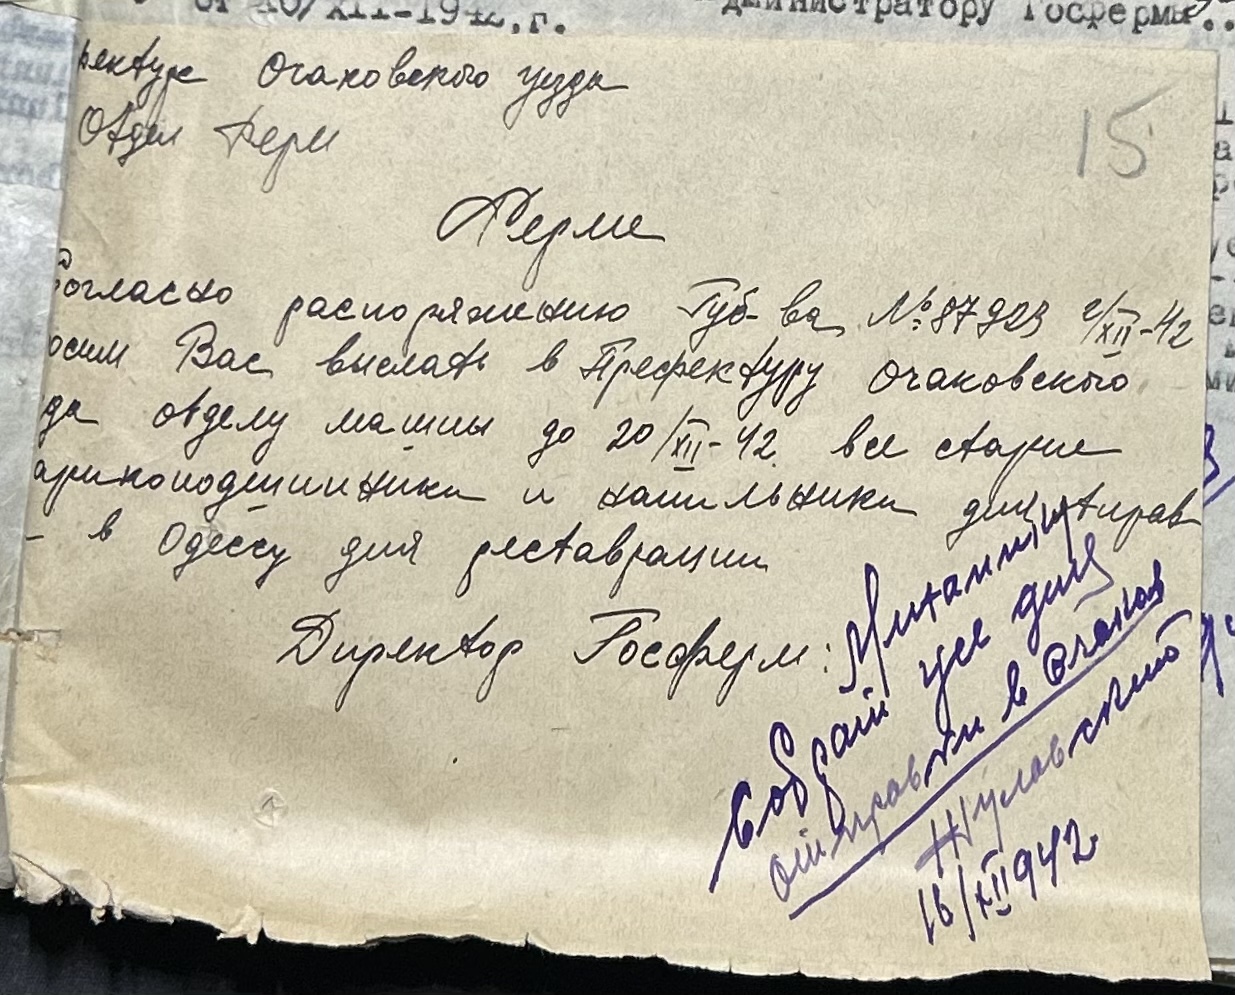 от 10/XII-1942.г.
Администратору Госфермы
ректура Очаковского уезда
Отдел Ферм
15
Ферме
Согласно распоряжению Губ-ва №87923 2/XII-42
осим Вас выслать в Префектуру Очаковского
да отделу машины до 20/XII-42 все старые
арикоподшипники и напильники для отправ
- в Одессу для реставрации
Директор Госферм:
Механику
Собрать усе для
отправки в Очаков
Жуловский
16/XII 1942